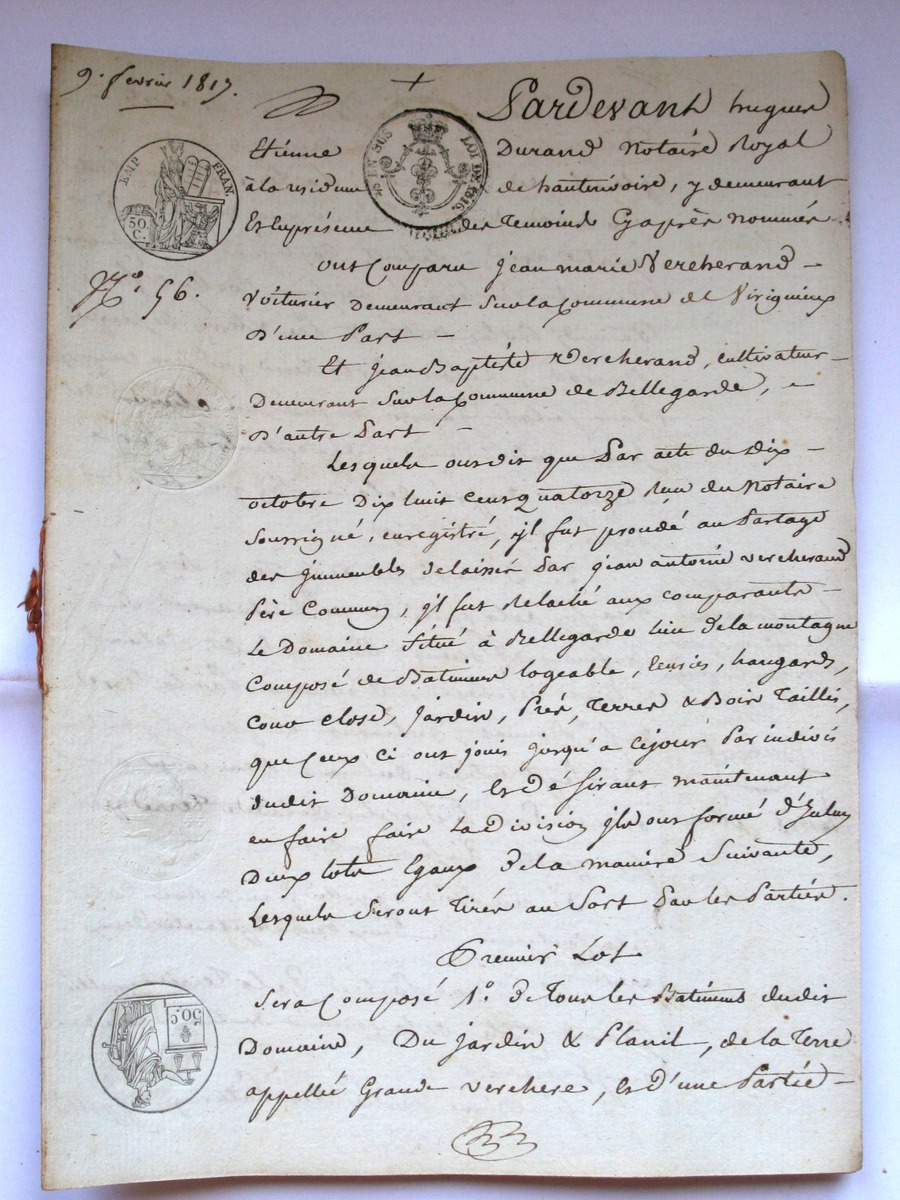 9. fevrier 1817.
Pardevant hugues
Etienne Durand Notaire Royal
à la residence de hauterivoire, y demeurant
Et En présence des Temoins Cyaprès nommés
EMP. FRAN.
50. C.
EN SUS
LOI DE 1816.
No. 56.
ont Comparu jean marie Vercherand
Voiturier Demeurant Sur la Commune de Virigneux
D'une Part
Et jean Baptiste Vercherand, cultivateur
Demeurant Sur la Commune de Bellegarde,
D'autre Part
Lesquels ont dit que Par acte du Dix
octobre Dix huit Cens quatorze Reçu du Notaire
Soussigné, enregistré, il fut procédé au Partage
des jmmeubles delaissé Par jean antoine vercherand
Père Commun, il fut Relaché aux comparants
Le Domaine Situé à Bellegarde lieu de la montagne
Composé de Batimens logeable, hangards,
Cour close, Jardin, Prés, Terres & Bois Taillis,
que Ceux ci ont jouis jusqu'a Cejour Par indivis
dudit Domaine, Et Désirant maintenant
en faire faire La Division ils ont formé d'Iceluy
Deux lots Egaux de la maniere Suivante,
Lesquels Seront Tirés au Sort Par les Parties.
Premier Lot
Sera Composé 1o. de Tous les Batimens dudit
Domaine, Du Jardin & Planil, de la Terre
appellée Grande verchere, et d'une Partie
50.C